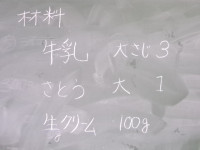 材料
牛乳 大さじ3
さとう 大 1
生クリーム 100g